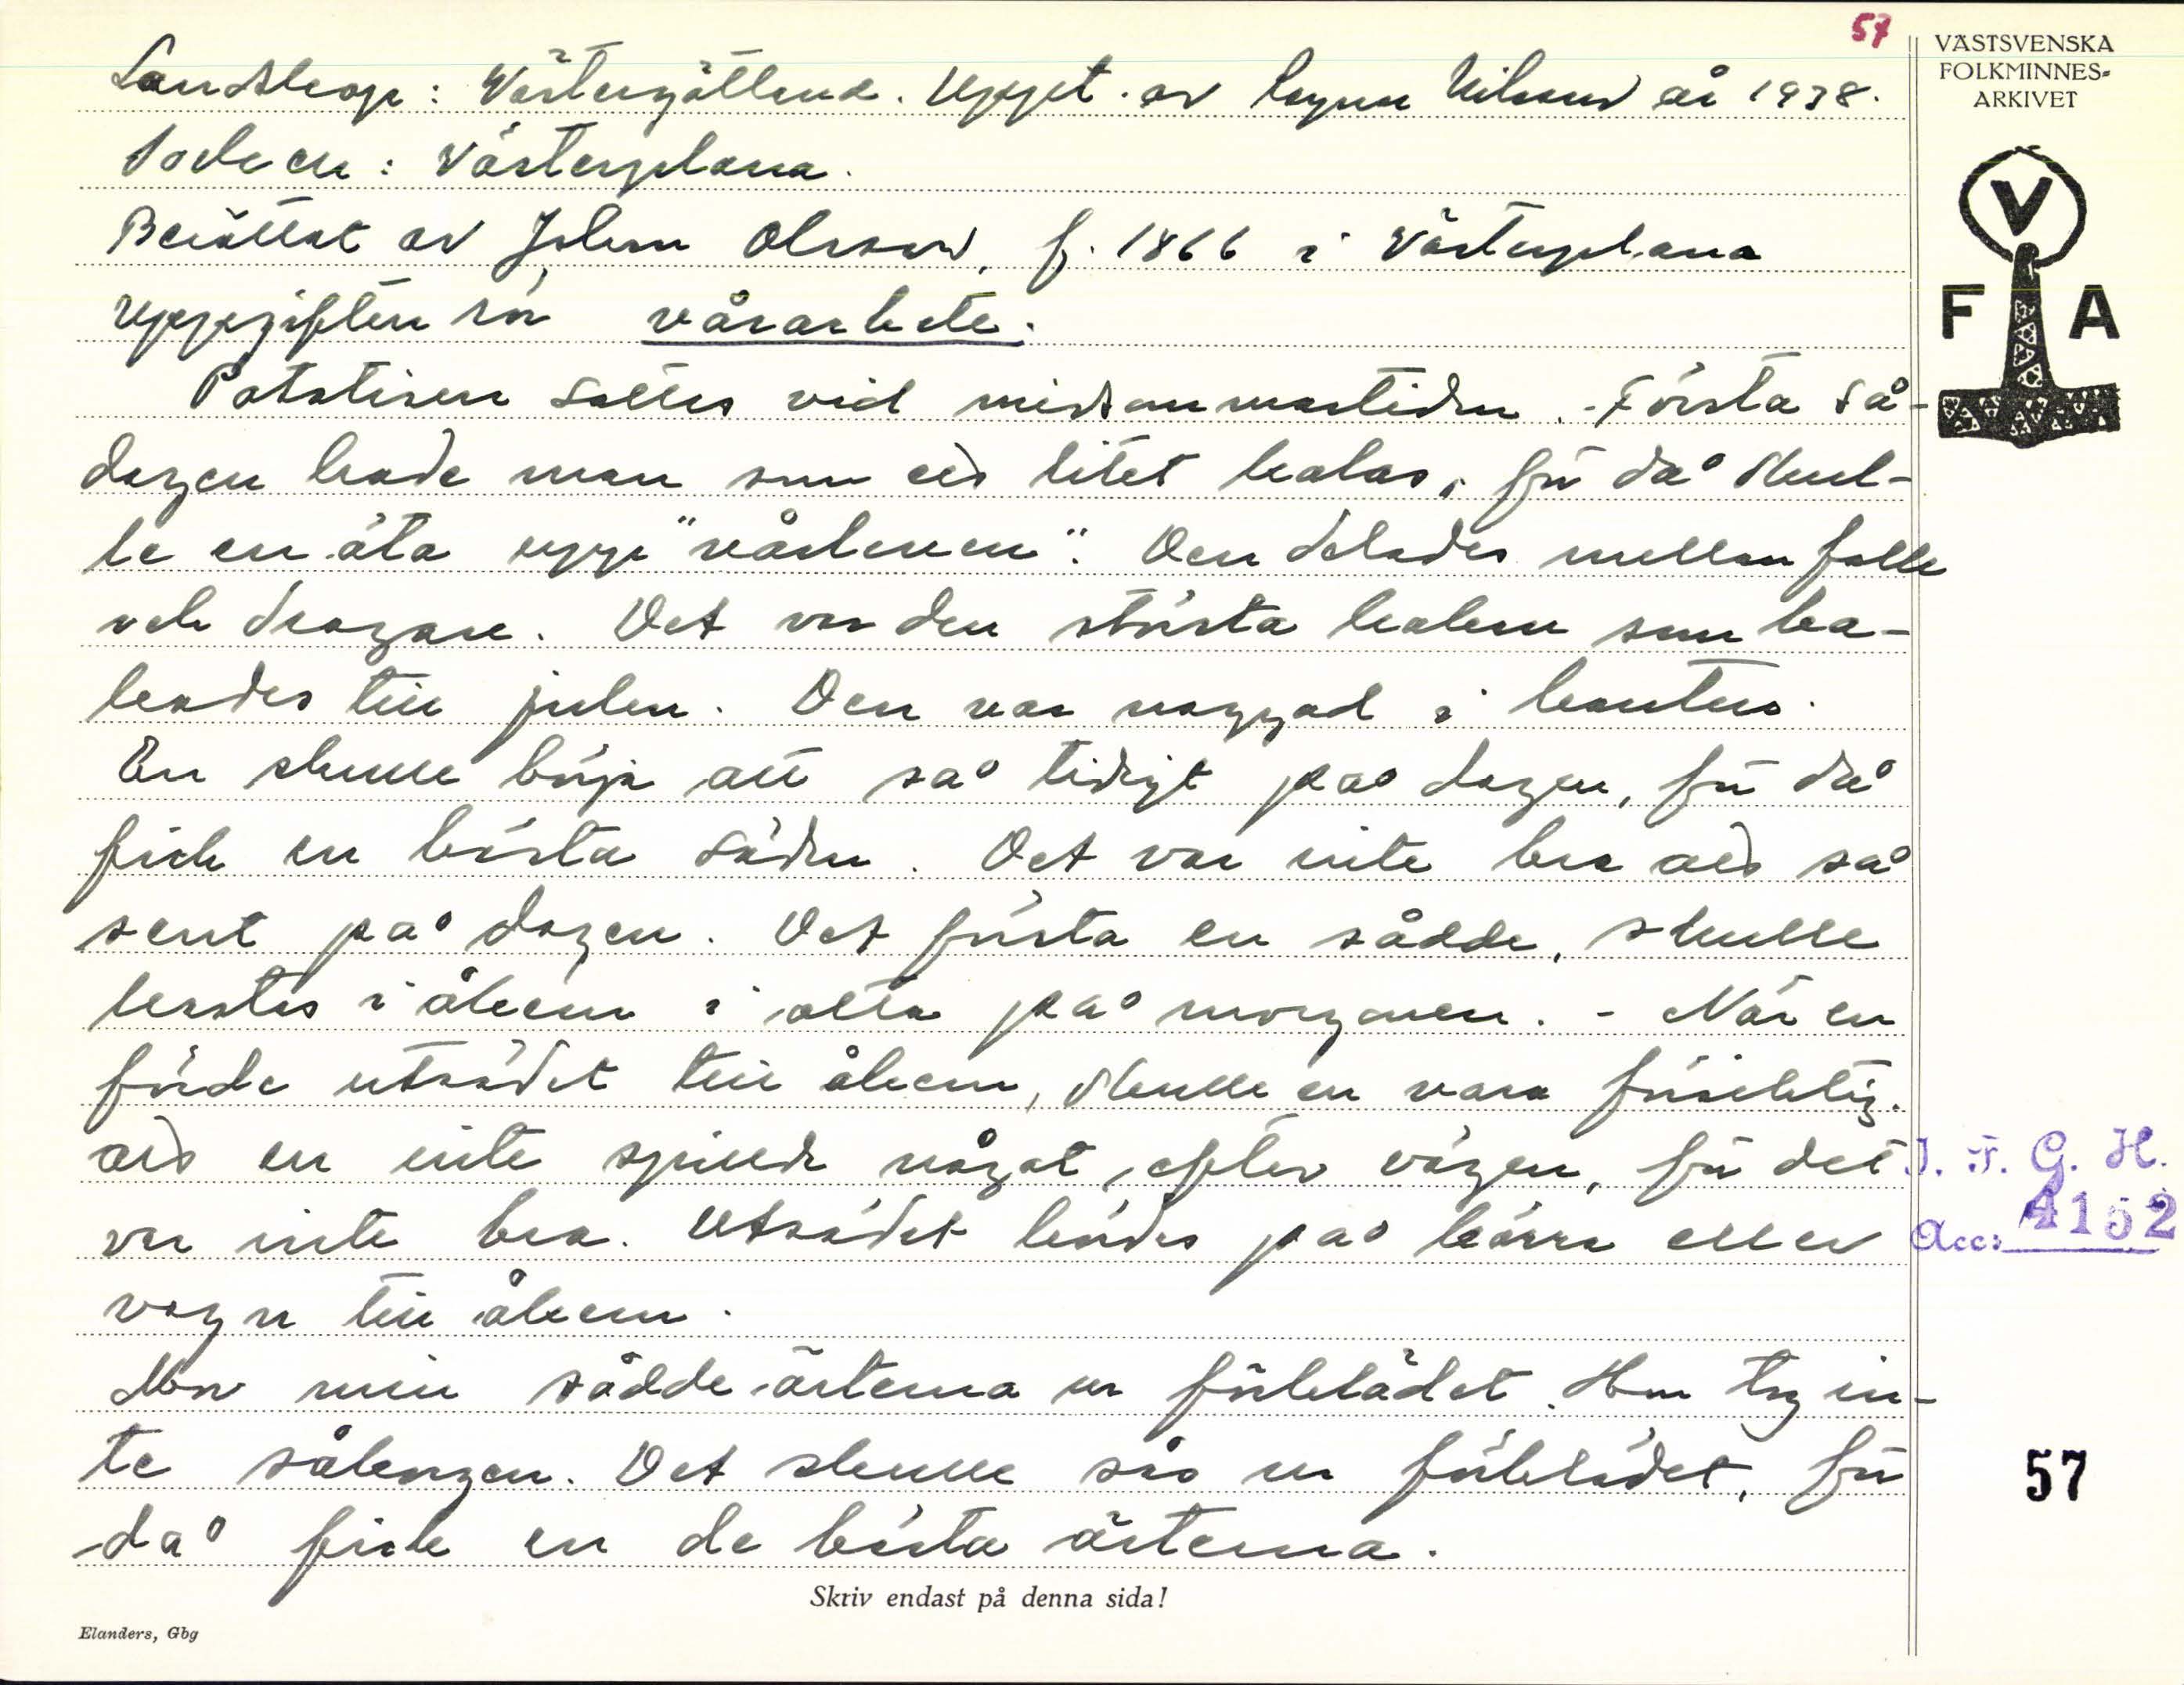 57
VÄSTSVENSKA
FOLKMINNES-
ARKIVET
V
F A
Landskap: Västergötland. Uppt. av Ragnar Nilsson år 1938.
Socken: Västerplana.
Berättat av Johan Olsson, f. 1866 i Västerplana
Uppgiften rör vårarbete.
Potatisen sattes vid midsommartiden. - Första så-
dagen hade man som ett litet kalas, för då skul-
le en äta upp "såkakan". Den delades mellan folk
och dragare. Det var den största kakan som ba-
kades till julen. Den var naggad i kanten.
En skulle börja att så tidigt på dagen, för då
fick en bästa säden. Det var inte bra att så
sent på dagen. Det första en sådde, skulle
kastas i åkern i otta på morgonen. - När en
förde utsädet till åkern, skulle en vara försiktig.
att en inte spillde något efter vägen, för det
var inte bra. Utsädet kördes på kärra eller
vagn till åkern.
Mor min sådde ärterna ur förklädet. Hon tog in-
te såkorgen. Det skulle sås ur förklädet, för
då fick en de bästa ärterna.
I. F. G. H.
Acc: 4152
57
Skriv endast på denna sida!
Elanders, Gbg